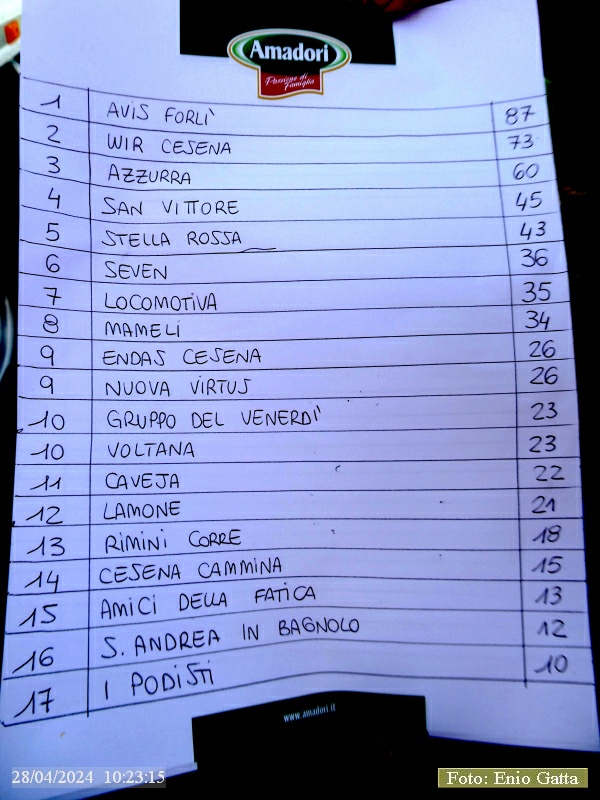 Amadori
Passione di
Famiglia
1 AVIS FORLI' 87
2 WIR CESENA 73
3 AZZURRA 60
4 SAN VITTORE 45
5 STELLA ROSSA 43
6 SEVEN 36
7 LOCOMOTIVA 35
8 MAMELI 34
9 ENDAS CESENA 26
9 NUOVA VIRTUS 26
10 GRUPPO DEL VENERDI' 23
10 VOLTANA 23
11 CAVEJA 22
12 LAMONE 21
13 RIMINI CORRE 18
14 CESENA CAMMINA 15
15 AMICI DELLA FATICA 13
16 S. ANDREA IN BAGNOLO 12
17 I PODISTI 10
www.amadori.it
28/04/2024 10:23:15
Foto: Enio Gatta